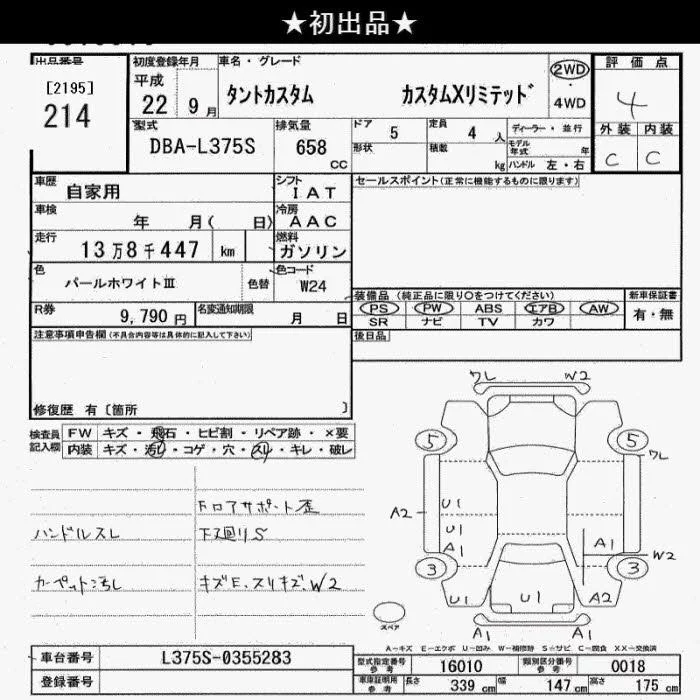 ★初出品★
出品番号
[2195]
214
初度登録年月
平成
22年 9月
車名・グレード
タントカスタム カスタムXリミテッド
2WD
・
4WD
評価点
4
外装 内装
C C
型式
DBA-L375S
排気量
658
cc
ドア 5
定員 4 人
形状
積載 kg
ディーラー・並行
モデル年式 年
ハンドル 左・右
車歴 自家用
シフト
I A T
セールスポイント(正常に機能するものに限ります)
車検 年 月( 日)
冷房
A A C
走行 13万8千447 km
燃料
ガソリン
色 パールホワイトIII
色替
色コード
W24
R券 9,790 円
名変通知期限 月 日
装備品 (純正品に限り〇をつけてください)
新車保証書
PS PW ABS エアB AW
有・無
SR ナビ TV カワ
後日品
注意事項申告欄(不具合内容等は具体的に記入して下さい)
修復歴 有〔箇所 〕
検査員記入欄
FW キズ・飛石・ヒビ割・リペア跡・×要
内装 キズ・汚レ・コゲ・穴・スレ・キレ・破レ
フロアサポート歪
ハンドルスレ 下廻りS
カーペット汚レ キズE、スリキズ、W2
ワレ W2
5 5
ワレ
A2 U1
U1
A1 A1
W2
3 3
U1 U1 A2
スペア
A1 A1
A-キズ E-エクボ U-凹み W-補修跡 S-サビ C-腐食 XX-交換済
車台番号 L375S-0355283
登録番号
型式指定番号
参考
16010
類別区分番号
参考
0018
車庫証明用
参考
長さ 339 cm
幅 147 cm
高さ 175 cm